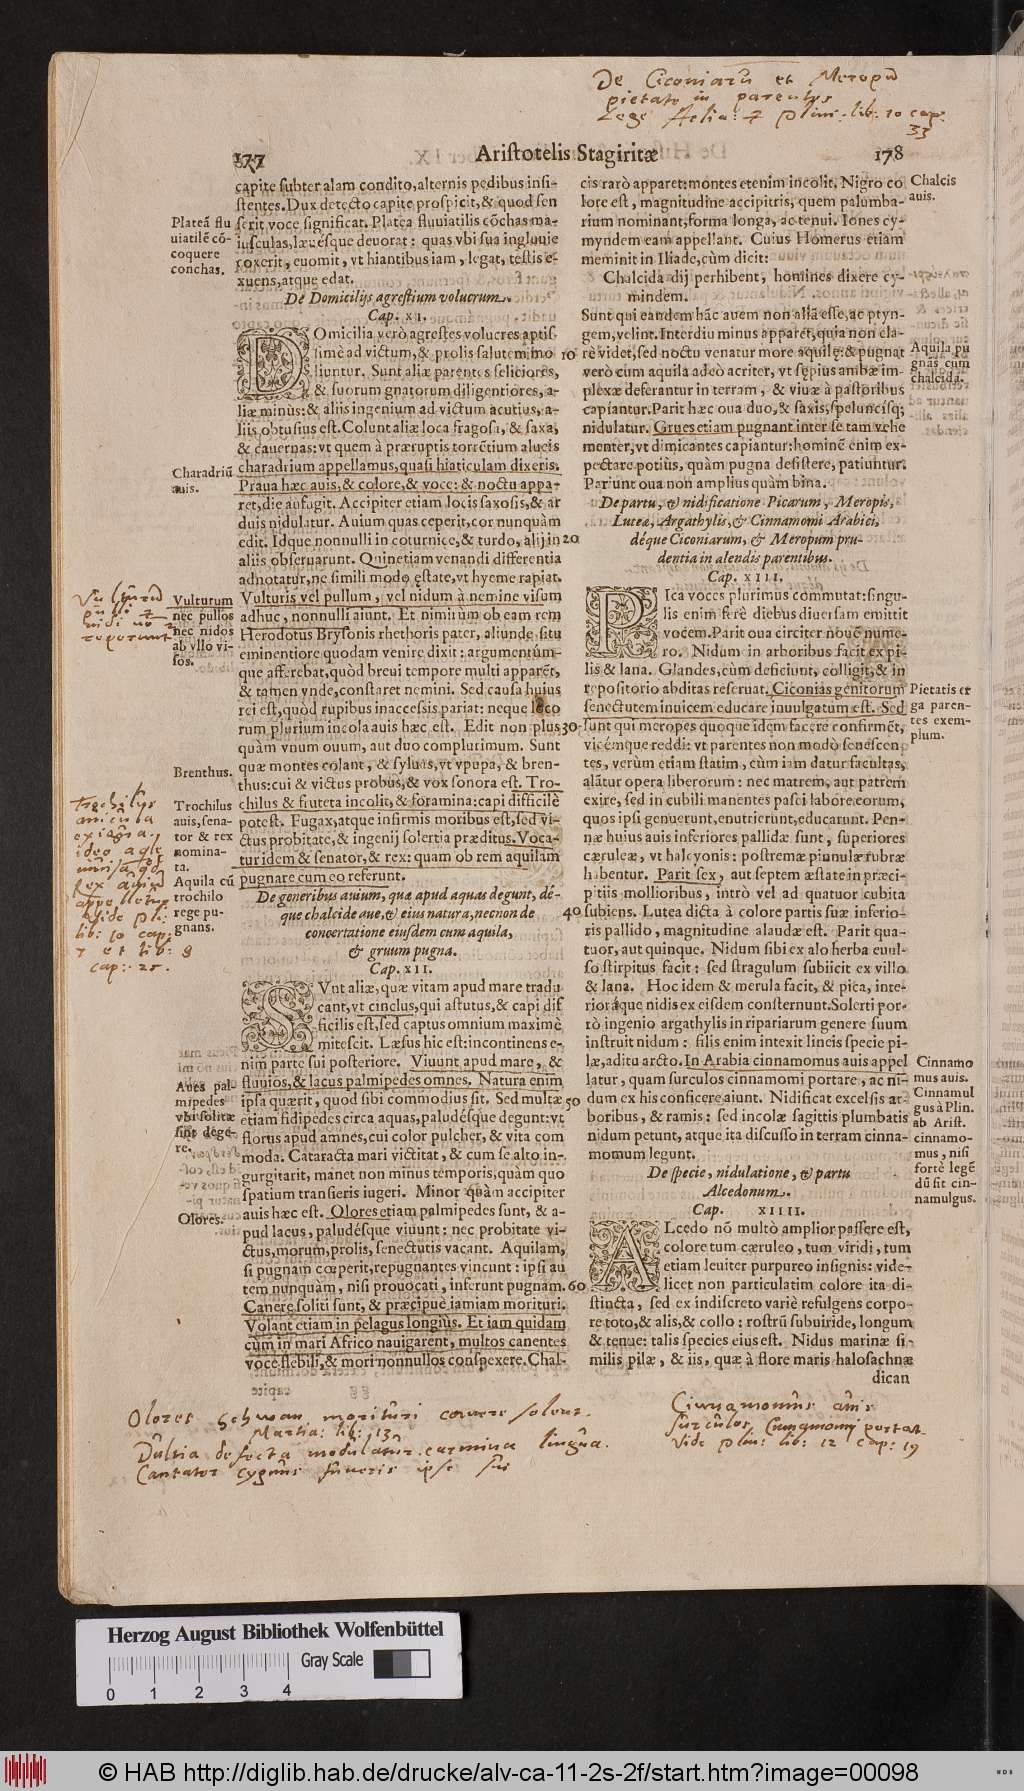 De Ciconiarũ et Meropũ
pietate in parentes
Lege Aelia: & Plini: lib: 10 cap:
33
177
Aristotelis Stagiritæ
178
capite subter alam condito, alternis pedibus insi-
stentes. Dux detecto capite prospicit, & quod sen
serit voce significat. Platea fluuiatilis cõchas ma-
iusculas, læuésque deuorat: quas vbi sua ingluuie
coxerit, euomit, vt hiantibus iam, legat, testis e-
xuens, atque edat.
De Domicilijs agrestium volucrum.
Cap. XI.
DOmicilia verò agrestes volucres aptis-
simè ad victum, & prolis salutem mo
liuntur. Sunt aliæ parentes feliciores,
& suorum gnatorum diligentiores, a-
liæ minùs: & aliis ingenium ad victum acutius, a-
liis obtusius est. Colunt aliæ loca fragosa, & saxa,
& cauernas: vt quem à præruptis torrẽtium alueis
charadrium appellamus, quasi hiaticulam dixeris.
Praua hæc auis, & colore, & voce: & noctu appa-
ret, die aufugit. Accipiter etiam locis saxosis, & ar
duis nidulatur. Auium quas ceperit, cor nunquàm
edit. Idque nonnulli in coturnice, & turdo, alij in
aliis obseruarunt. Quinetiam venandi differentia
adnotatur, ne simili modo ęstate, vt hyeme rapiat.
Vulturis vel pullum, vel nidum à nemine visum
adhuc, nonnulli aiunt. Et nimirùm ob eam rem
Herodotus Brysonis rhethoris pater, aliunde situ
eminentiore quodam venire dixit: argumentúm-
que afferebat, quòd breui tempore multi apparẽt,
& tamen vnde, constaret nemini. Sed causa huius
rei est, quòd rupibus inaccessis pariat: neque loco
rum plurium incola auis hæc est. Edit non plus
quàm vnum ouum, aut duo complurimum. Sunt
quæ montes colant, & syluas, vt vpupa, & bren-
thus: cui & victus probus, & vox sonora est. Tro-
chilus & fruteta incolit, & foramina: capi difficilè
potest. Fugax, atque infirmis moribus est, sed vi-
ctus probitate, & ingenij solertia præditus. Voca-
tur idem & senator, & rex: quam ob rem aquilam
pugnare cum eo referunt.
De generibus auium, quæ apud aquas degunt, dé-
que chalcide aue, & eius natura, necnon de
concertatione eiusdem cum aquila,
& gruum pugna.
Cap. XII.
SVnt aliæ, quæ vitam apud mare tradu
cant, vt cinclus, qui astutus, & capi dif
ficilis est, sed captus omnium maximè
mitescit. Læsus hic est: incontinens e-
nim parte sui posteriore. Viuunt apud mare, &
fluuios, & lacus palmipedes omnes. Natura enim
ipsa quærit, quod sibi commodius sit. Sed multæ
etiam fidipedes circa aquas, paludésque degunt: vt
florus apud amnes, cui color pulcher, & vita com
moda. Cataracta mari victitat, & cum se alto in-
gurgitarit, manet non minus temporis, quàm quo
spatium transieris iugeri. Minor quàm accipiter
auis hæc est. Olores etiam palmipedes sunt, & a-
pud lacus, paludésque viuunt: nec probitate vi-
ctus, morum, prolis, senectutis vacant. Aquilam,
si pugnam cœperit, repugnantes vincunt: ipsi au
tem nunquàm, nisi prouocati, inferunt pugnam.
Canere soliti sunt, & præcipuè iamiam morituri.
Volant etiam in pelagus longiùs. Et iam quidam
cùm in mari Africo nauigarent, multos canentes
voce flebili, & mori nonnullos conspexere. Chal-
Plateã flu
uiatilẽ cõ-
coquere
conchas.
Charadriũ
auis.
Vulturum
nec pullos
nec nidos
ab vllo vi-
sos.
Brenthus.
Trochilus
auis, sena-
tor & rex
nomina-
ta.
Aquila cũ
trochilo
rege pu-
gnans.
Aues pal-
mipedes
vbi solitæ
sint dege-
re.
Olores.
Vulturũ
pulli &
nidi nõ
reperiunt
Trochilus
avicula
exigua,
ideo aqle
invisa qd
Rex aviũ
appelletur
Vide Pli:
lib: 10 cap:
7 et lib: 8
cap: 25.
10
20
30
40
50
60
cis rarò apparet: montes etenim incolit. Nigro co
lore est, magnitudine accipitris, quem palumba-
rium nominant, forma longa, ac tenui. Iones cy-
myndem eam appellant. Cuius Homerus etiam
meminit in Iliade, cùm dicit:
Chalcida dij perhibent, homines dixere cy-
mindem.
Sunt qui eandem hãc auem non aliã esse, ac ptyn-
gem, velint. Interdiu minus apparet, quia non cla-
rè videt, sed noctu venatur more aquilę: & pugnat
verò cum aquila adeò acriter, vt sępius ambæ im-
plexæ deferantur in terram, & viuæ à pastoribus
capiantur. Parit hæc oua duo, & saxis, speluncisq;
nidulatur. Grues etiam pugnant inter se tam vehe
menter, vt dimicantes capiantur: hominẽ enim ex-
pectare potiùs, quàm pugna desistere, patiuntur.
Pariunt oua non amplius quàm bina.
De partu, & nidificatione Picarum, Meropis,
Luteæ, Argathylis, & Cinnamomi Arabici,
déque Ciconiarum, & Meropum pru-
dentia in alendis parentibus.
Cap. XIII.
PIca voces plurimus commutat: singu-
lis enim ferè diebus diuersam emittit
vocem. Parit oua circiter nouẽ nume-
ro. Nidum in arboribus facit ex pi-
lis & lana. Glandes, cùm deficiunt, colligit, & in
repositorio abditas reseruat. Ciconias genitorum
senectutem inuicem educare inuulgatum est. Sed
sunt qui meropes quoque idem facere confirmẽt,
vicémque reddi: vt parentes non modò senescen-
tes, verùm etiam statim, cùm iam datur facultas,
alãtur opera liberorum: nec matrem, aut patrem
exire, sed in cubili manentes pasci labore eorum,
quos ipsi genuerunt, enutrierunt, educarunt. Pen-
næ huius auis inferiores pallidæ sunt, superiores
cæruleæ, vt halcyonis: postremæ pinnulæ rubræ
habentur. Parit sex, aut septem æstate in præci-
pitiis mollioribus, intrò vel ad quatuor cubita
subiens. Lutea dicta à colore partis suæ inferio-
ris pallido, magnitudine alaudæ est. Parit qua-
tuor, aut quinque. Nidum sibi ex alo herba euul-
so stirpitus facit: sed stragulum subiicit ex villo
& lana. Hoc idem & merula facit, & pica, inte-
rioráque nidis ex eisdem consternunt. Solerti por-
rò ingenio argathylis in ripariarum genere suum
instruit nidum: filis enim intexit lineis specie pi-
læ, aditu arcto. In Arabia cinnamomus auis appel
latur, quam surculos cinnamomi portare, ac ni-
dum ex his conficere aiunt. Nidificat excelsis ar-
boribus, & ramis: sed incolæ sagittis plumbatis
nidum petunt, atque ita discusso in terram cinna-
momum legunt.
De specie, nidulatione, & partu
Alcedonum.
Cap. XIIII.
ALcedo nõ multò amplior passere est,
colore tum cæruleo, tum viridi, tum
etiam leuiter purpureo insignis: vide-
licet non particulatim colore ita di-
stincta, sed ex indiscreto variè refulgens corpo-
re toto, & alis, & collo: rostrũ subuiride, longum
& tenue: talis species eius est. Nidus marinæ si-
milis pilæ, & iis, quæ à flore maris halosachnæ
dican
Chalcis
auis.
Aquila pu
gnãs cum
chalcida.
Pietatis er
ga paren-
tes exem-
plum.
Cinnamo
mus auis.
Cinnamul
gus à Plin.
ab Arist.
cinnamo-
mus, nisi
fortè legẽ
dũ sit cin-
namulgus.
Olores Schwan morituri canere solent.
Martia: lib: 13
Dulcia defecta modulatur carmina lingua.
Cantator cygnus funeris ipse sui
Cinnamomus avis
surculos Cinnamomi portat
Vide Plin: lib: 12 cap: 19
Herzog August Bibliothek Wolfenbüttel
Gray Scale
0 1 2 3 4
© HAB http://diglib.hab.de/drucke/alv-ca-11-2s-2f/start.htm?image=00098